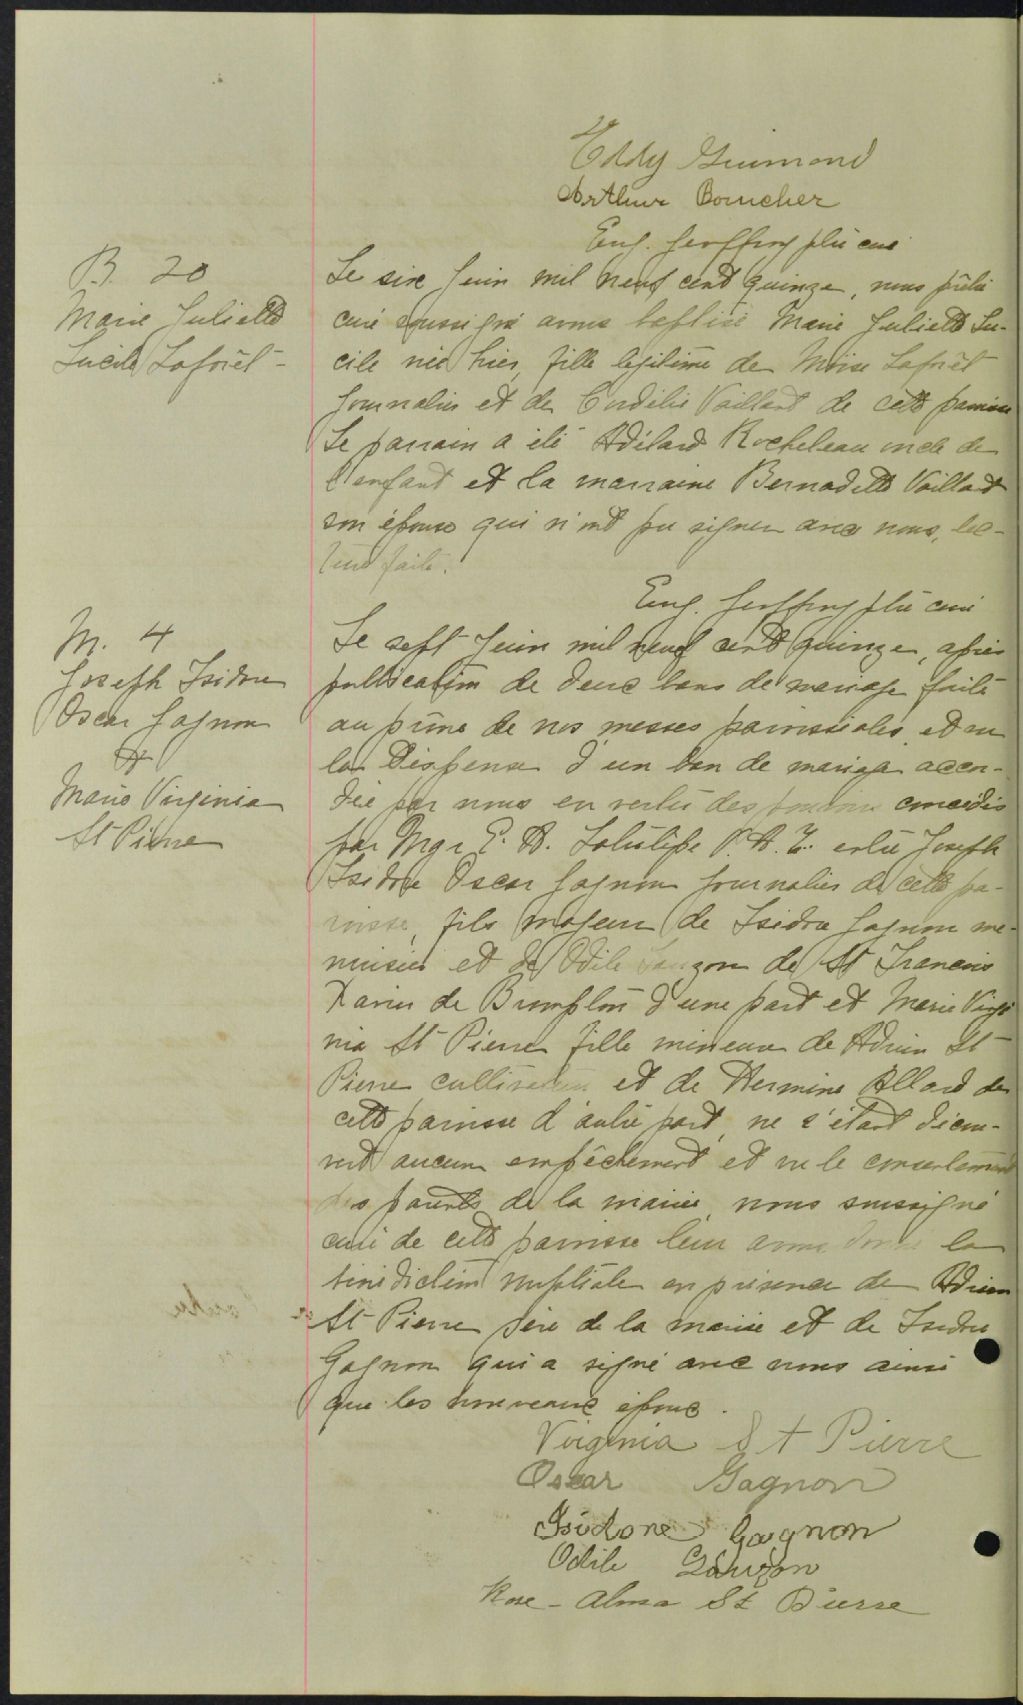 Eddy Guimond
Arthur Boucher
Eug. Geoffroy ptre curé
B. 20
Marie Juliette
Lucile Laforêt -
Le six Juin mil neuf cent quinze, nous prêtre
curé soussigné avons baptisé Marie Juliette Lu-
cile née hier, fille légitime de Moïse Laforêt
journalier et de Cordélie Vaillant de cette paroisse
Le parrain a été Adélard Rocheleau oncle de
l'enfant et la marraine Bernadette Vaillant
son épouse qui n'ont pu signer avec nous, lec-
ture faite.
Eug. Geoffroy ptre curé
M. 4
Joseph Isidore
Oscar Gagnon
et
Marie Virginia
St Pierre
Le sept Juin mil neuf cent quinze, après
publication de deux bans de mariage faite
au prône de nos messes paroissiales et vu
la dispense d'un ban de mariage accor-
dée par nous en vertu des pouvoirs concédés
par Mgr E. A. Latulipe V. A. T. entre Joseph
Isidore Oscar Gagnon journalier de cette pa-
roisse, fils majeur de Isidore Gagnon me-
nuisier et de Odile Lauzon de St Francois
Xavier de Brompton d'une part et Marie Virgi
nia St Pierre fille mineure de Adrien St
Pierre cultivateur et de Hermine Allard de
cette paroisse d'autre part, ne s'étant décou-
vert aucun empêchement et vu le consentement
des parents de la mariée, nous soussigné
curé de cette paroisse leur avons donné la
bénédiction nuptiale en présence de Adrien
St Pierre père de la mariée et de Isidore
Gagnon qui a signé avec nous ainsi
que les nouveaux époux.
Virginia St Pierre
Oscar Gagnon
Isidore Gagnon
Odile Lauzon
Rose-Alma St Pierre